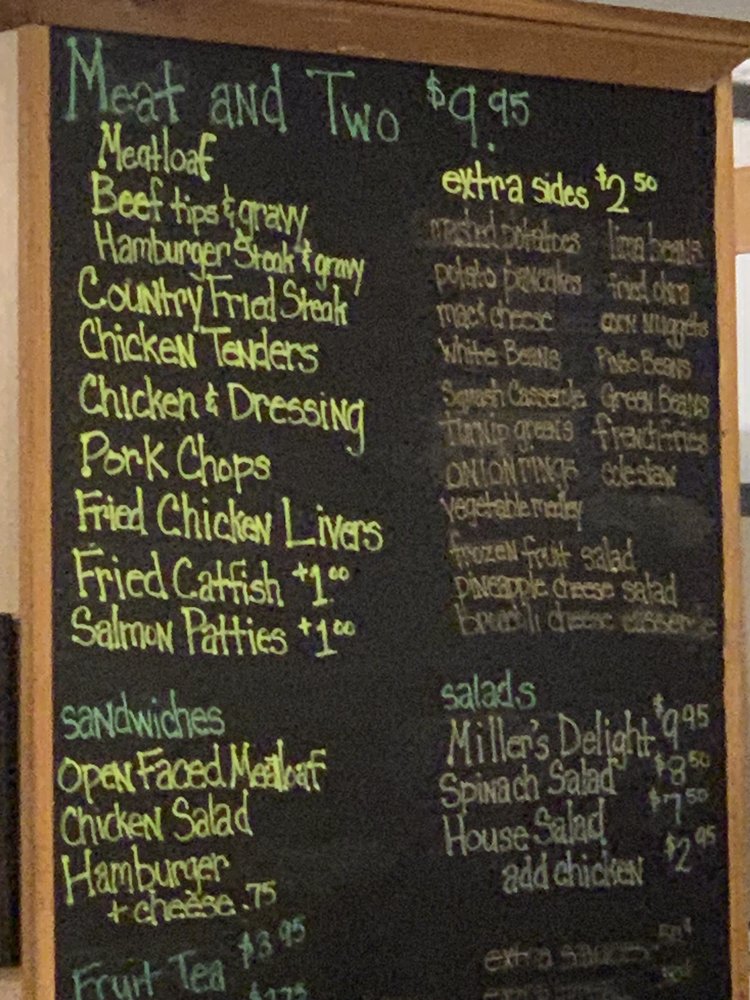 Meat and Two $9.95
Meatloaf
Beef tips & gravy
Hamburger Steak & gravy
Country Fried Steak
Chicken Tenders
Chicken & Dressing
Pork Chops
Fried Chicken Livers
Fried Catfish +1.00
Salmon Patties +1.00
extra sides $2.50
mashed potatoes lima beans
potato pancakes fried okra
mac & cheese corn Nuggets
White Beans Pinto Beans
Squash Casserole Green Beans
Turnip greens french fries
onion rings coleslaw
vegetable medley
frozen fruit salad
pineapple cheese salad
broccoli cheese casserole
sandwiches
Open Faced Meatloaf
Chicken Salad
Hamburger
+ cheese .75
salads
Miller's Delight $9.95
Spinach Salad $8.50
House Salad $7.50
add chicken $2.95
Fruit Tea $3.95
$1.75
extra sauces .50¢
extra